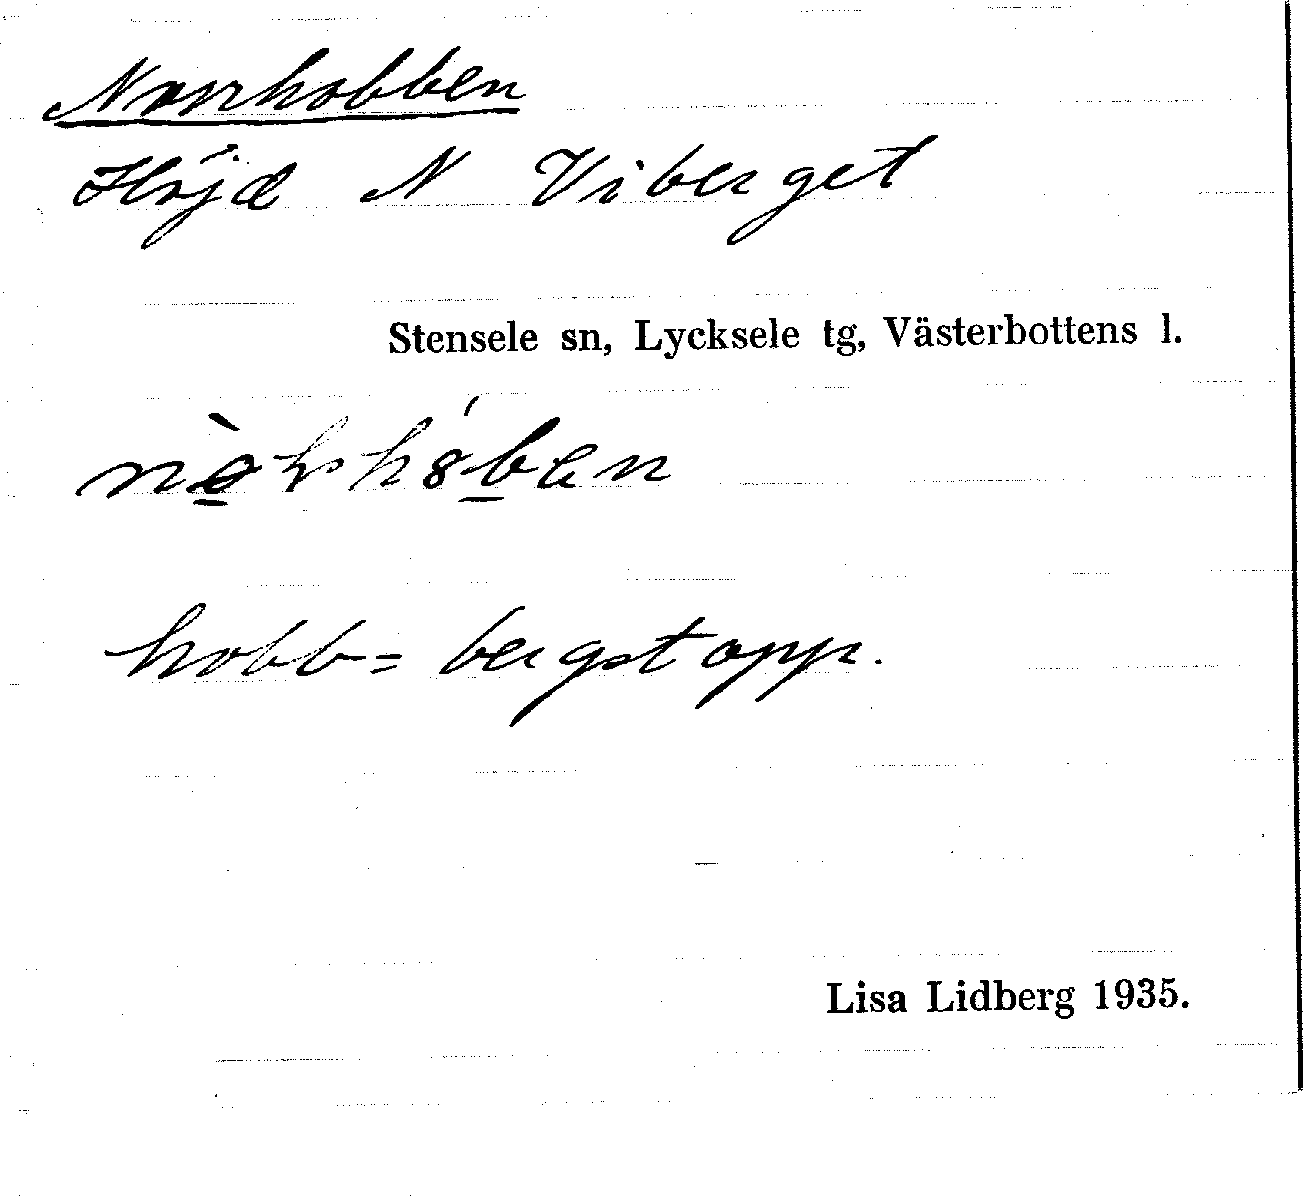 Norrhobben
Höjd N Viberget
Stensele sn, Lycksele tg, Västerbottens l.
hobb = bergstopp.
Lisa Lidberg 1935.